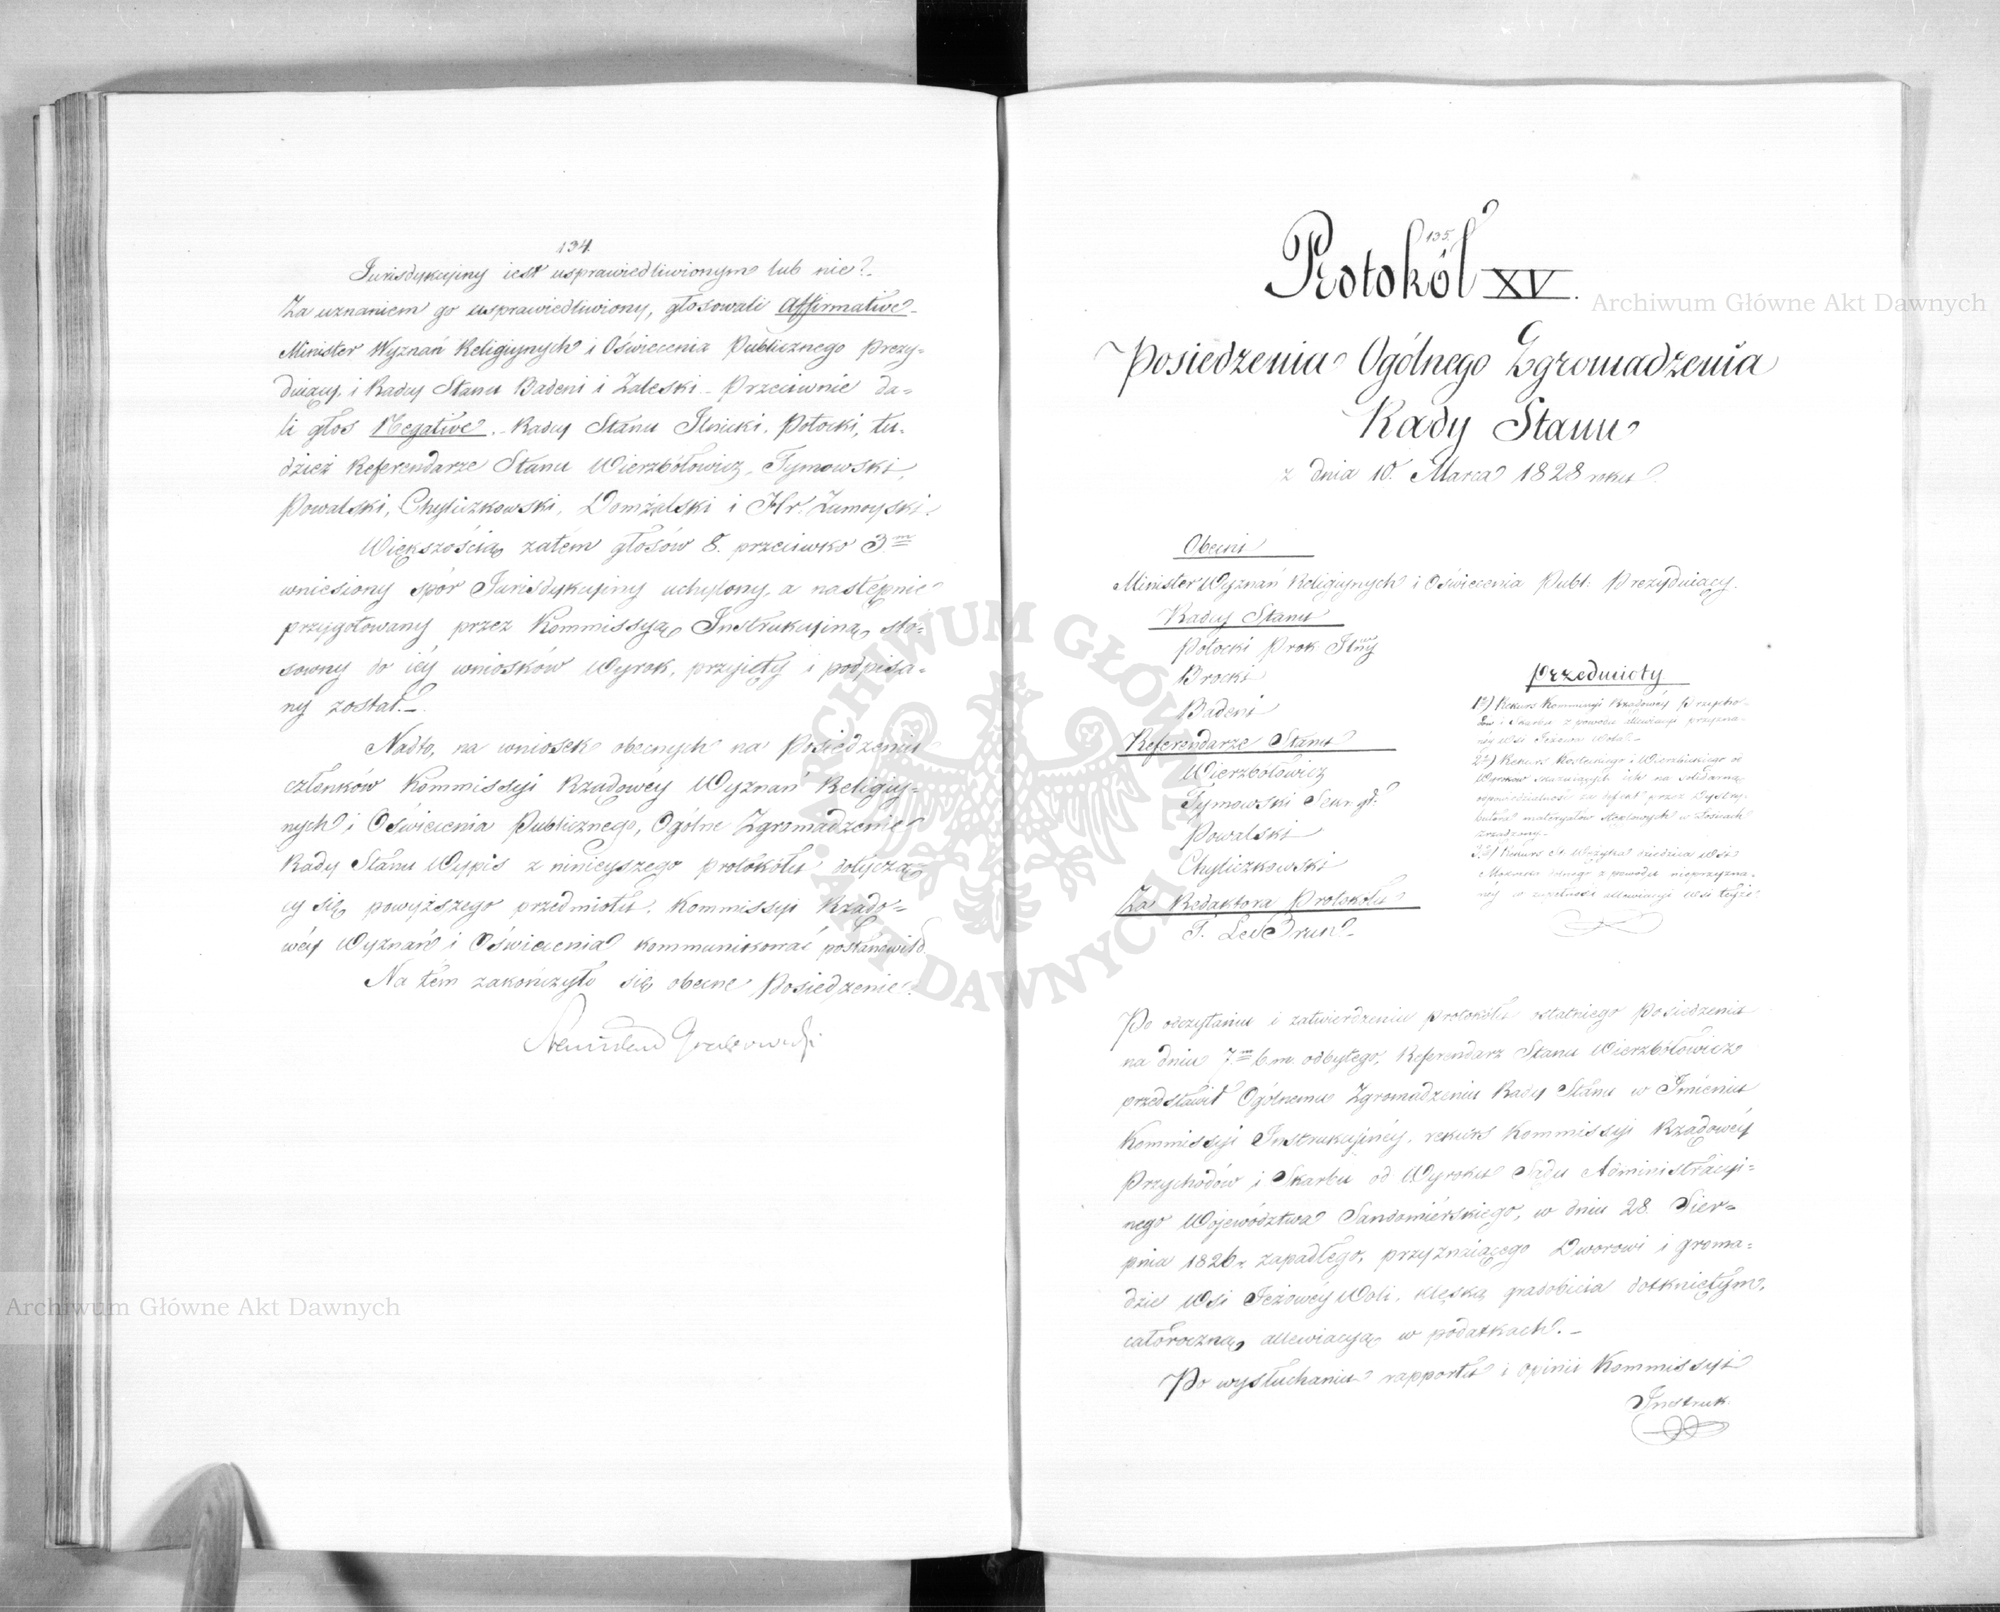 134.
Jurisdykcyiny iest usprawiedliwionym lub nie?
Za uznaniem go usprawiedliwiony, głosowali Affirmative
Minister Wyznań Religijnych i Oświecenia Publicznego Prezy-
duiący, i Radcy Stanu Badeni i Zaleski. Przeciwnie da-
li głos Negative. Radcy Stanu Potocki, tu-
dzież Referendarze Stanu Wierzbółowicz, Tymowski,
Powalski, Chyliczkowski, Domżalski i Hr. Zamoyski.
Większością zatém głosów 8. przeciwko 3m
wniesiony spór Jurisdykcyiny uchylony, a następnie
przygotowany przez Kommissyą Instrukcyiną sto-
sowny do iéy wniosków Wyrok, przyięty i podpisa-
ny został.
Nadto, na wniosek obecnych na Posiedzeniu
członków Kommissyi Rządowéy Wyznań Religiy-
nych i Oświecenia Publicznego, Ogólne Zgromadzenie
Rady Stanu Wypis z ninieyszego protokółu dotyczą-
cy się powyższego przedmiotu, Kommissyi Rządo-
wéy Wyznań i Oświecenia kommunikować postanowiło.
Na tém zakończyło się obecne Posiedzenie.
Stanisław Grabowski
135.
Protokół XV.
Posiedzenia Ogólnego Zgromadzenia
Rady Stanu
z dnia 10. Marca 1828 roku.
Obecni
Minister Wyznań Religijnych i Oświecenia Publ. Prezyduiący.
Radcy Stanu
Potocki Prok Jlny
Brocki
Badeni
Referendarze Stanu
Wierzbółowicz
Tymowski Sekr. gł.
Powalski
Chyliczkowski
Za Redaktora Protokółu
F. LeBrun
Przedmioty
1o) Rekurs Kommissyi Rządowéy Przycho-
dów i Skarbu z powodu allewiacyi przyzna-
néy Wsi Jeżowa Wola.
2o) Rekurs Kosteckiego i od
Wyroków skazuiących ich na solidarną
odpowiedzialność za defekt przez Dystry-
butora materyałów Steplowych w Łosicach
zrządzony.
3o) Rekurs St. dziedzica Wsi
z powodu nieprzyzna-
néy w zupełności allewiacyi Wsi teyże.
Po odczytaniu i zatwierdzeniu protokółu ostatniego Posiedzenia
na dniu 7m b.m. odbytego, Referendarz Stanu Wierzbółowicz
przedstawił Ogólnemu Zgromadzeniu Rady Stanu w Jmieniu
Kommissyi Jnstrukcyinéy, rekurs Kommissyi Rządowéy
Przychodów i Skarbu od Wyroku Sądu Administracyi-
nego Województwa Sandomiérskiego, w dniu 28. Sier-
pnia 1826 r. zapadłego, przyznaiącego Dworowi i groma-
dzie Wsi Jeżowéy Woli, klęską gradobicia dotkniętym,
całoroczną allewiacyą w podatkach.
Po wysłuchaniu rapportu i opinii Kommissyi
Jnstruk.
Archiwum Główne Akt Dawnych
Archiwum Główne Akt Dawnych
ARCHIWUM GŁÓWNE AKT DAWNYCH